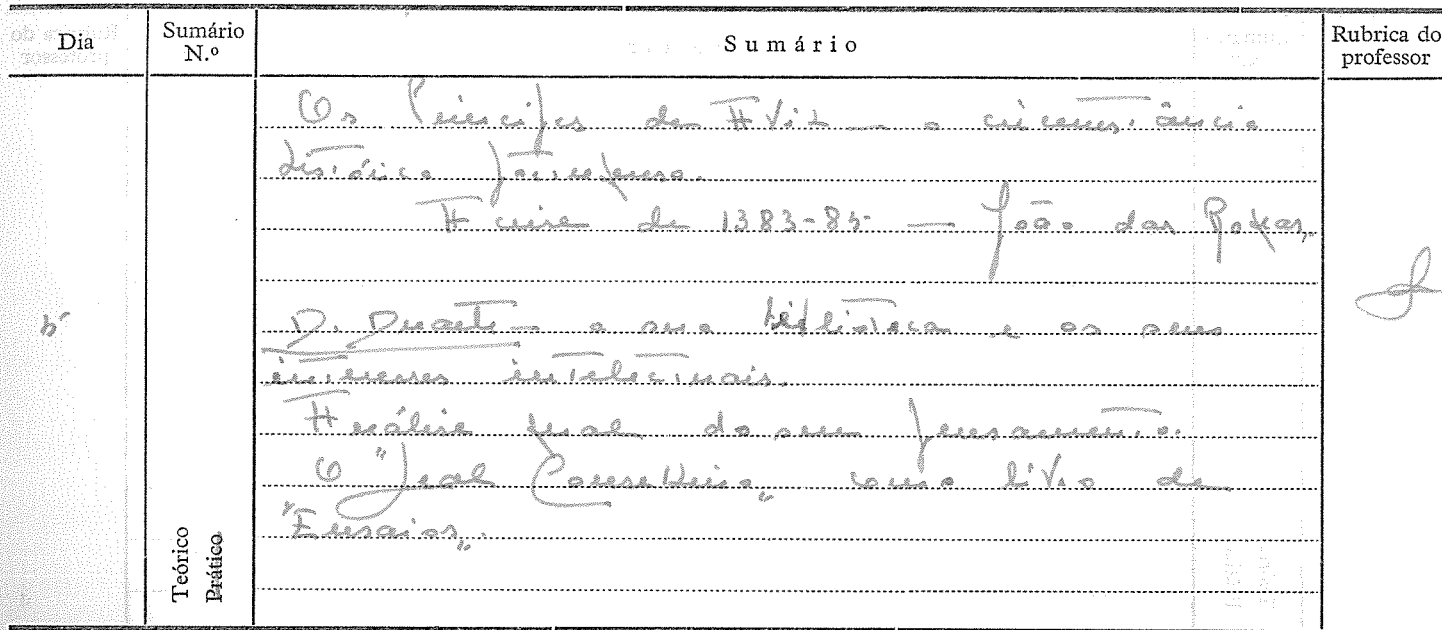 Dia
Sumário N.º
Sumário
Rubrica do professor
Os Príncipes de Aviz — a circunstância
histórico portuguesa.
A crise de 1383-85 — João das Regras.
D. Duarte — a sua biblioteca e os seus
interesses intelectuais.
Análise geral do seu pensamento.
O "Leal Conselheiro" como livro de
"Ensaios".
Teórico
Prático